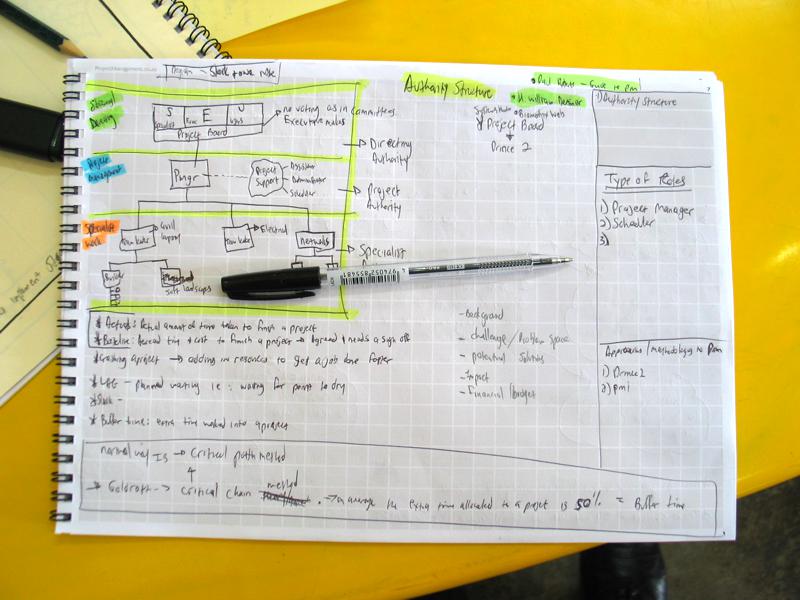 Design - Slack
Authority Structure
H. William Deskmer
S E U
Project Board
no voting as in committees
Executive makes
Directing Authority
Project Board
Prince 2
1) Authority Structure
Project management
Pmgr
Project Support
Assistant
Administrator
Scheduler
Project Authority
Type of Roles
1) Project Manager
2) Schedler
3)
Specialist work
Team leader
Civil layout
Team leader
Electrical
Networks
Specialist
Builder
Soft landscapes
4 976052 855481
* Actuals: Actual amount of time taken to finish a project
* Baseline: Agreed time + cost to finish a project → Agreed + needs a sign off
* Crashing a project → adding in resources to get a job done faster
* LAG - planned waiting ie: waiting for paint to dry
* Slack -
* Buffer time: extra time worked into a project
- Background
- challenge/Problem Space
- potential Solutions
- Impact
- Financial/budget
Approaches/methodologies to Pm
1) Prince2
2) pmi
normal way Is → Critical path method
→ critical chain method → on average the extra time allocated to a project is 50% = Buffer time